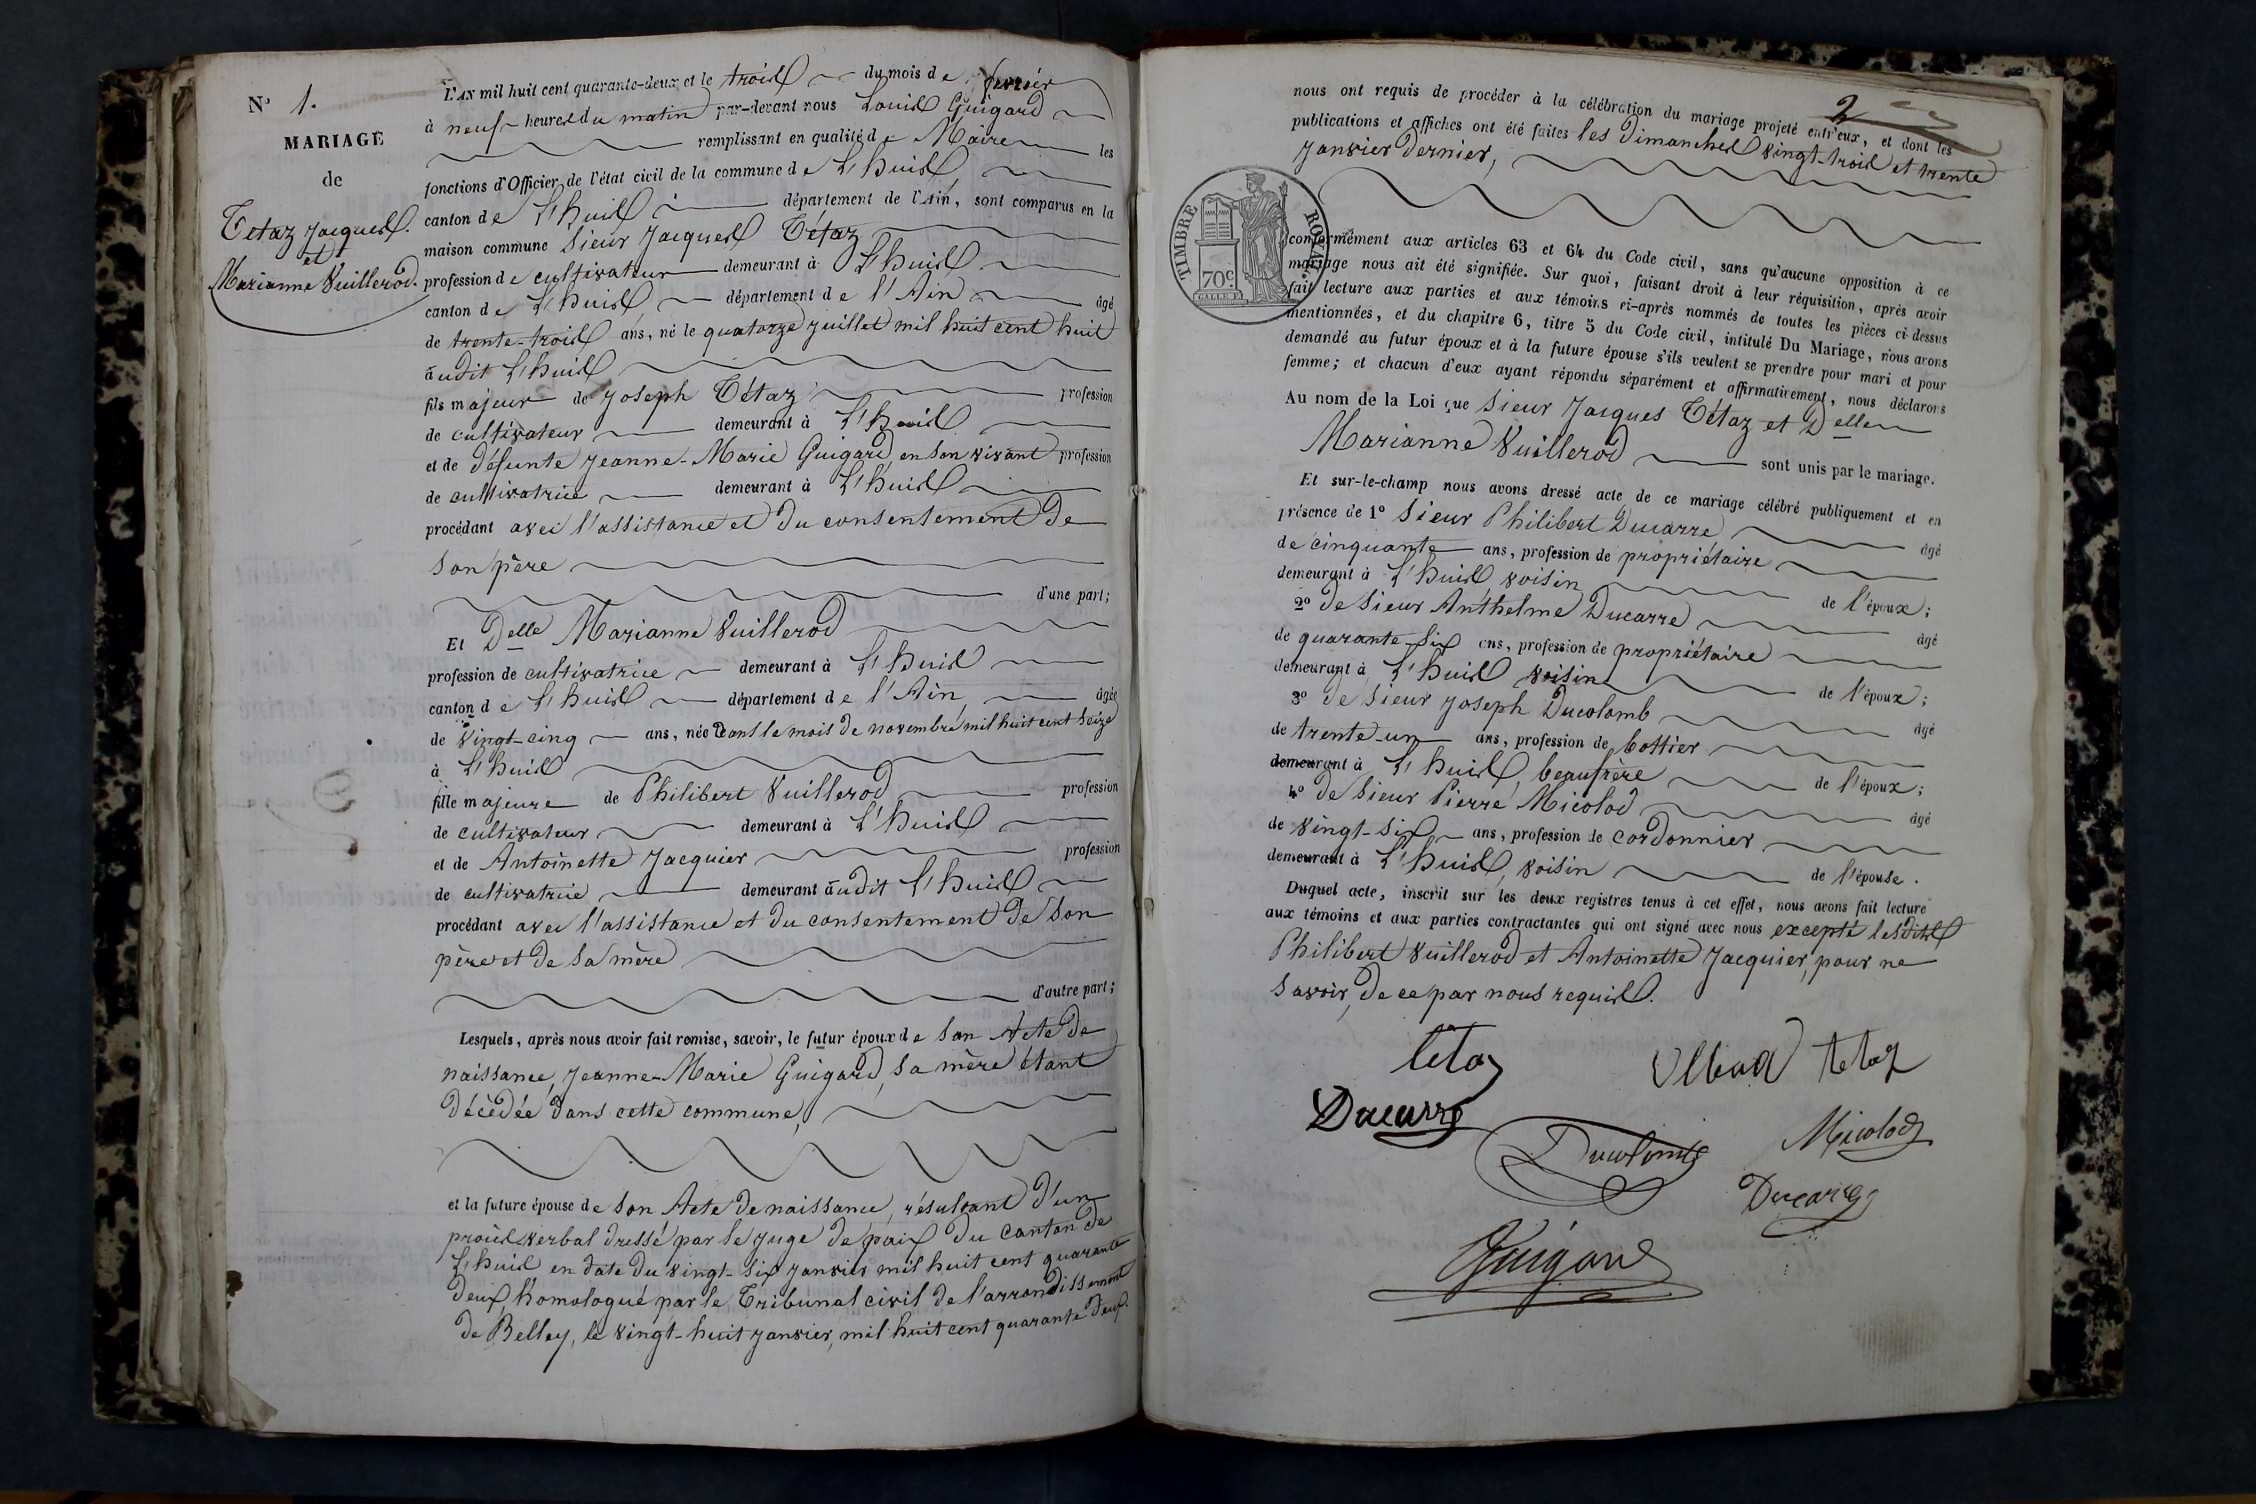 N° 1.
MARIAGE
de
Tétaz Jacques.
et
Marianne Vuillerod.
L'AN mil huit cent quarante-deux et le trois du mois de février
à neuf heures du matin par-devant nous Louis Guigard
remplissant en qualité de Maire les
fonctions d'Officier de l'état civil de la commune de L'huis
canton de L'huis département de l'Ain, sont comparus en la
maison commune Sieur Jacques Tétaz
profession de cultivateur demeurant à L'huis
canton de L'huis département de l'Ain âgé
de trente-trois ans, né le quatorze juillet mil huit cent huit
audit L'huis
fils majeur de Joseph Tétaz profession
de cultivateur demeurant à L'huis
et de défunte Jeanne-Marie Guigard en son vivant profession
de cultivatrice demeurant à L'huis
procédant avec l'assistance et du consentement de
son père
d'une part;
Et Delle Marianne Vuillerod
profession de cultivatrice demeurant à L'huis
canton de L'huis département de l'Ain, âgée
de vingt-cinq ans, née dans le mois de novembre mil huit cent seize
à L'huis
fille majeure de Philibert Vuillerod profession
de cultivateur demeurant à L'huis
et de Antoinette Jacquier profession
de cultivatrice demeurant audit L'huis
procédant avec l'assistance et du consentement de son
père et de sa mère
d'autre part;
Lesquels, après nous avoir fait remise, savoir, le futur époux de son Acte de
naissance, Jeanne-Marie Guigard, sa mère étant
décédée dans cette commune,
et la future épouse de son Acte de naissance, résultant d'un
procès verbal dressé par le juge de paix du canton de
L'huis en date du vingt-six janvier mil huit cent quarante
deux, homologué par le Tribunal civil de l'arrondissement
de Belley, le vingt-huit janvier, mil huit cent quarante deux.
2
nous ont requis de procéder à la célébration du mariage projeté entr'eux, et dont les
publications et affiches ont été faites les dimanches vingt-trois et trente
janvier dernier,
TIMBRE ROYAL.
70c.
conformément aux articles 63 et 64 du Code civil, sans qu'aucune opposition à ce
mariage nous ait été signifiée. Sur quoi, faisant droit à leur réquisition, après avoir
fait lecture aux parties et aux témoins ci-après nommés de toutes les pièces ci-dessus
mentionnées, et du chapitre 6, titre 5 du Code civil, intitulé Du Mariage, nous avons
demandé au futur époux et à la future épouse s'ils veulent se prendre pour mari et pour
femme; et chacun d'eux ayant répondu séparément et affirmativement, nous déclarons
Au nom de la Loi que Sieur Jacques Tétaz et Delle
Marianne Vuillerod sont unis par le mariage.
Et sur-le-champ nous avons dressé acte de ce mariage célébré publiquement et en
présence de 1° Sieur Philibert Ducarre âgé
de cinquante ans, profession de propriétaire
demeurant à L'huis voisin de l'époux;
2° de Sieur Anthelme Ducarre âgé
de quarante-six ans, profession de propriétaire
demeurant à L'huis voisin de l'époux;
3° de Sieur Joseph Ducolomb âgé
de trente-un ans, profession de bottier
demeurant à L'huis, beaufrère de l'époux;
4° de Sieur Pierre Micolod âgé
de vingt-six ans, profession de cordonnier
demeurant à L'huis, voisin de l'épouse.
Duquel acte, inscrit sur les deux registres tenus à cet effet, nous avons fait lecture
aux témoins et aux parties contractantes qui ont signé avec nous excepté lesdits
Philibert Vuillerod et Antoinette Jacquier, pour ne
savoir, de ce par nous requis.
tétaz
tetaz
Ducarre
Ducolomb
Micolod
Ducarre
Guigard